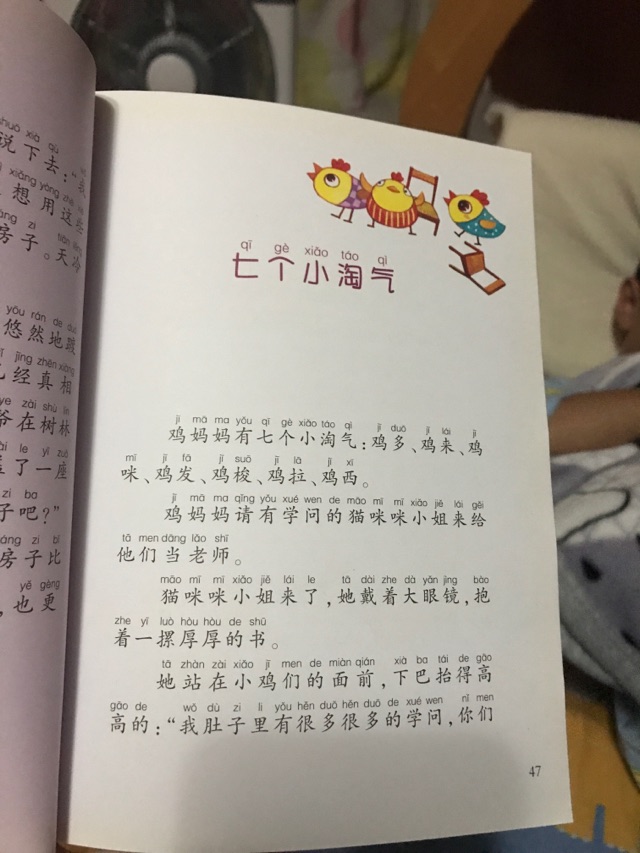 shuō xià qù
说下去：“我
xiǎng yòng zhè
想用这些
房子。天冷
yōu rán de duó
悠然地踱
jīng zhēn xiàng
已经真相
ye zài shù lín
爷在树林
le yí zuò
了一座
zi ba
子吧？”
fáng zi bǐ
房子比
yě gèng
，也更
qī gè xiǎo táo qì
七个小淘气
jī mā ma yǒu qī gè xiǎo táo qì jī duō jī lái jī
鸡妈妈有七个小淘气：鸡多、鸡来、鸡
mī jī fā jī suō jī lā jī xī
咪、鸡发、鸡梭、鸡拉、鸡西。
jī mā ma qǐng yǒu xué wen de māo mī mī xiǎo jiě lái gěi
鸡妈妈请有学问的猫咪咪小姐来给
tā men dāng lǎo shī
他们当老师。
māo mī mī xiǎo jiě lái le tā dài zhe dà yǎn jìng bào
猫咪咪小姐来了，她戴着大眼镜，抱
zhe yí luò hòu hòu de shū
着一摞厚厚的书。
tā zhàn zài xiǎo jī men de miàn qián xià ba tái de gāo
她站在小鸡们的面前，下巴抬得高
gāo de wǒ dù zi li yǒu hěn duō hěn duō de xué wen nǐ men
高的：“我肚子里有很多很多的学问，你们
47